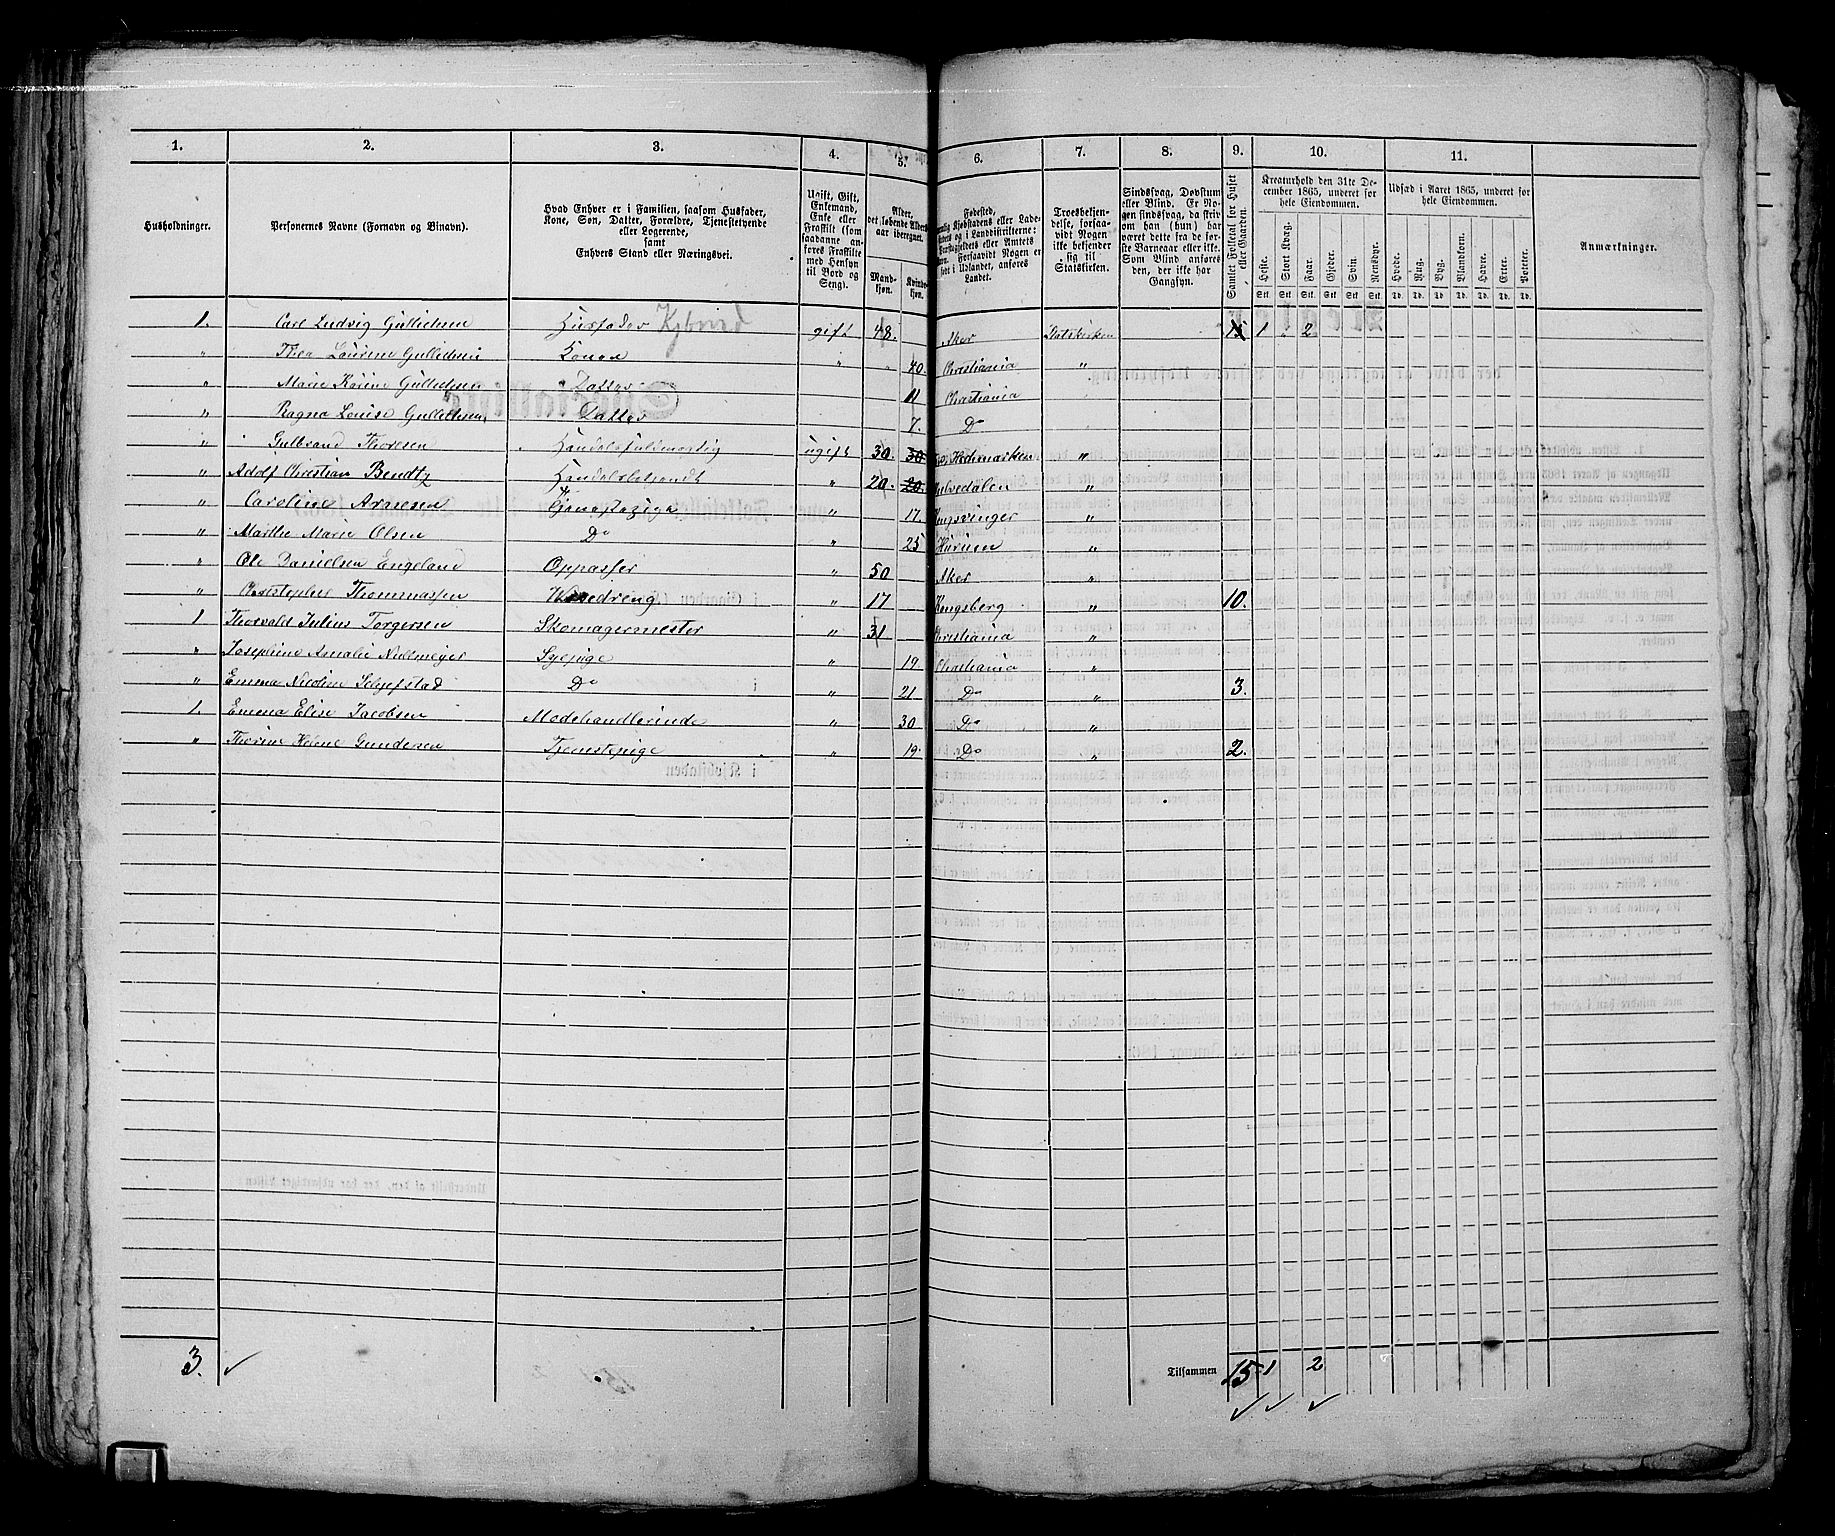 1. 2. 3. 4. 5. 6. 7. 8. 9. 10. 11.
Husholdninger.
Personernes Navne (Fornavn og Binavn).
Hvad Enhver er i Familien, saasom Husfader,
Kone, Søn, Datter, Forældre, Tjenestetyende
eller Logerende,
samt
Enhvers Stand eller Næringsvei.
Ugift, Gift,
Enkemand,
Enke eller
Fraskilt (som
saadanne an-
føres Fraskilte
med Hensyn
til Bord og
Seng).
Alder,
det løbende Alders-
aar iberegnet.
Mand-
kjøn.
Kvinde-
kjøn.
Fødested,
Kjøbstadens eller Lade-
i Landdistrikterne:
eller Amtets
Forsaavidt Nogen er
født i Udlandet, anføres
Landet.
Troesbekjen-
delse, forsaa-
vidt Nogen
ikke bekjender
sig til
Statskirken.
Sindssvag, Døvstum
eller Blind. Er No-
gen sindssvag, da skriv
om han (hun) har
været dette fra de før-
ste Barneaar eller ikke.
Som Blind anføres
den, der ikke har
Gangsyn.
Samlet Folketal for Huset
eller Gaarden.
Kreaturhold den 31te De-
cember 1865, underet for
hele Eiendommen.
Heste. Stort Kvæg. Faar. Gjeder. Svin. Rensdyr.
Stk. Stk. Stk. Stk. Stk. Stk.
Udsæd i Aaret 1865, underet for
hele Eiendommen.
Hvede. Rug. Byg. Blandkorn. Havre. Erter. Poteter.
Td. Td. Td. Td. Td. Td. Td.
Anmærkninger.
1. Carl Ludvig Gullichsen Husfader gift 48. Aker Statskirken 15 1 " 2
" Thea Laurine Gullichsen Konen " " 40. Christiania "
" Marie Karine Gullichsen Datter 11 Christiania
" Ragna Louise Gullichsen Datter 7. Do
" Gulbrand Thoresen Handelsfuldmægtig ugift 30. 30 Hedemarken "
" Adolf Christian Bendtz Handelsbetjendt " 20. 20. "
" Caroline Arnesen Tjenestepige " 17. Kongsvinger "
" Marthe Marie Olsen Do " 25 Hurum "
" Ole Danielsen Engeland Oppasser " 50 Aker "
" Christophe Thommassen " 17 Kongsberg " 10.
1 Thorvald Julius Torgersen Skomagermester " 31 Christiania "
" Josephine Amalie Nullmeyer Sypige " 19 Christiania "
" Emma Nicoline Schjefstad Do " 21 Do " 3.
1. Emma Elise Jacobsen Modehandlerinde " 30 Do "
" Thorine Helene Gundersen Tjenestepige " 19. Do " 2.
3. Tilsammen 15 1 2